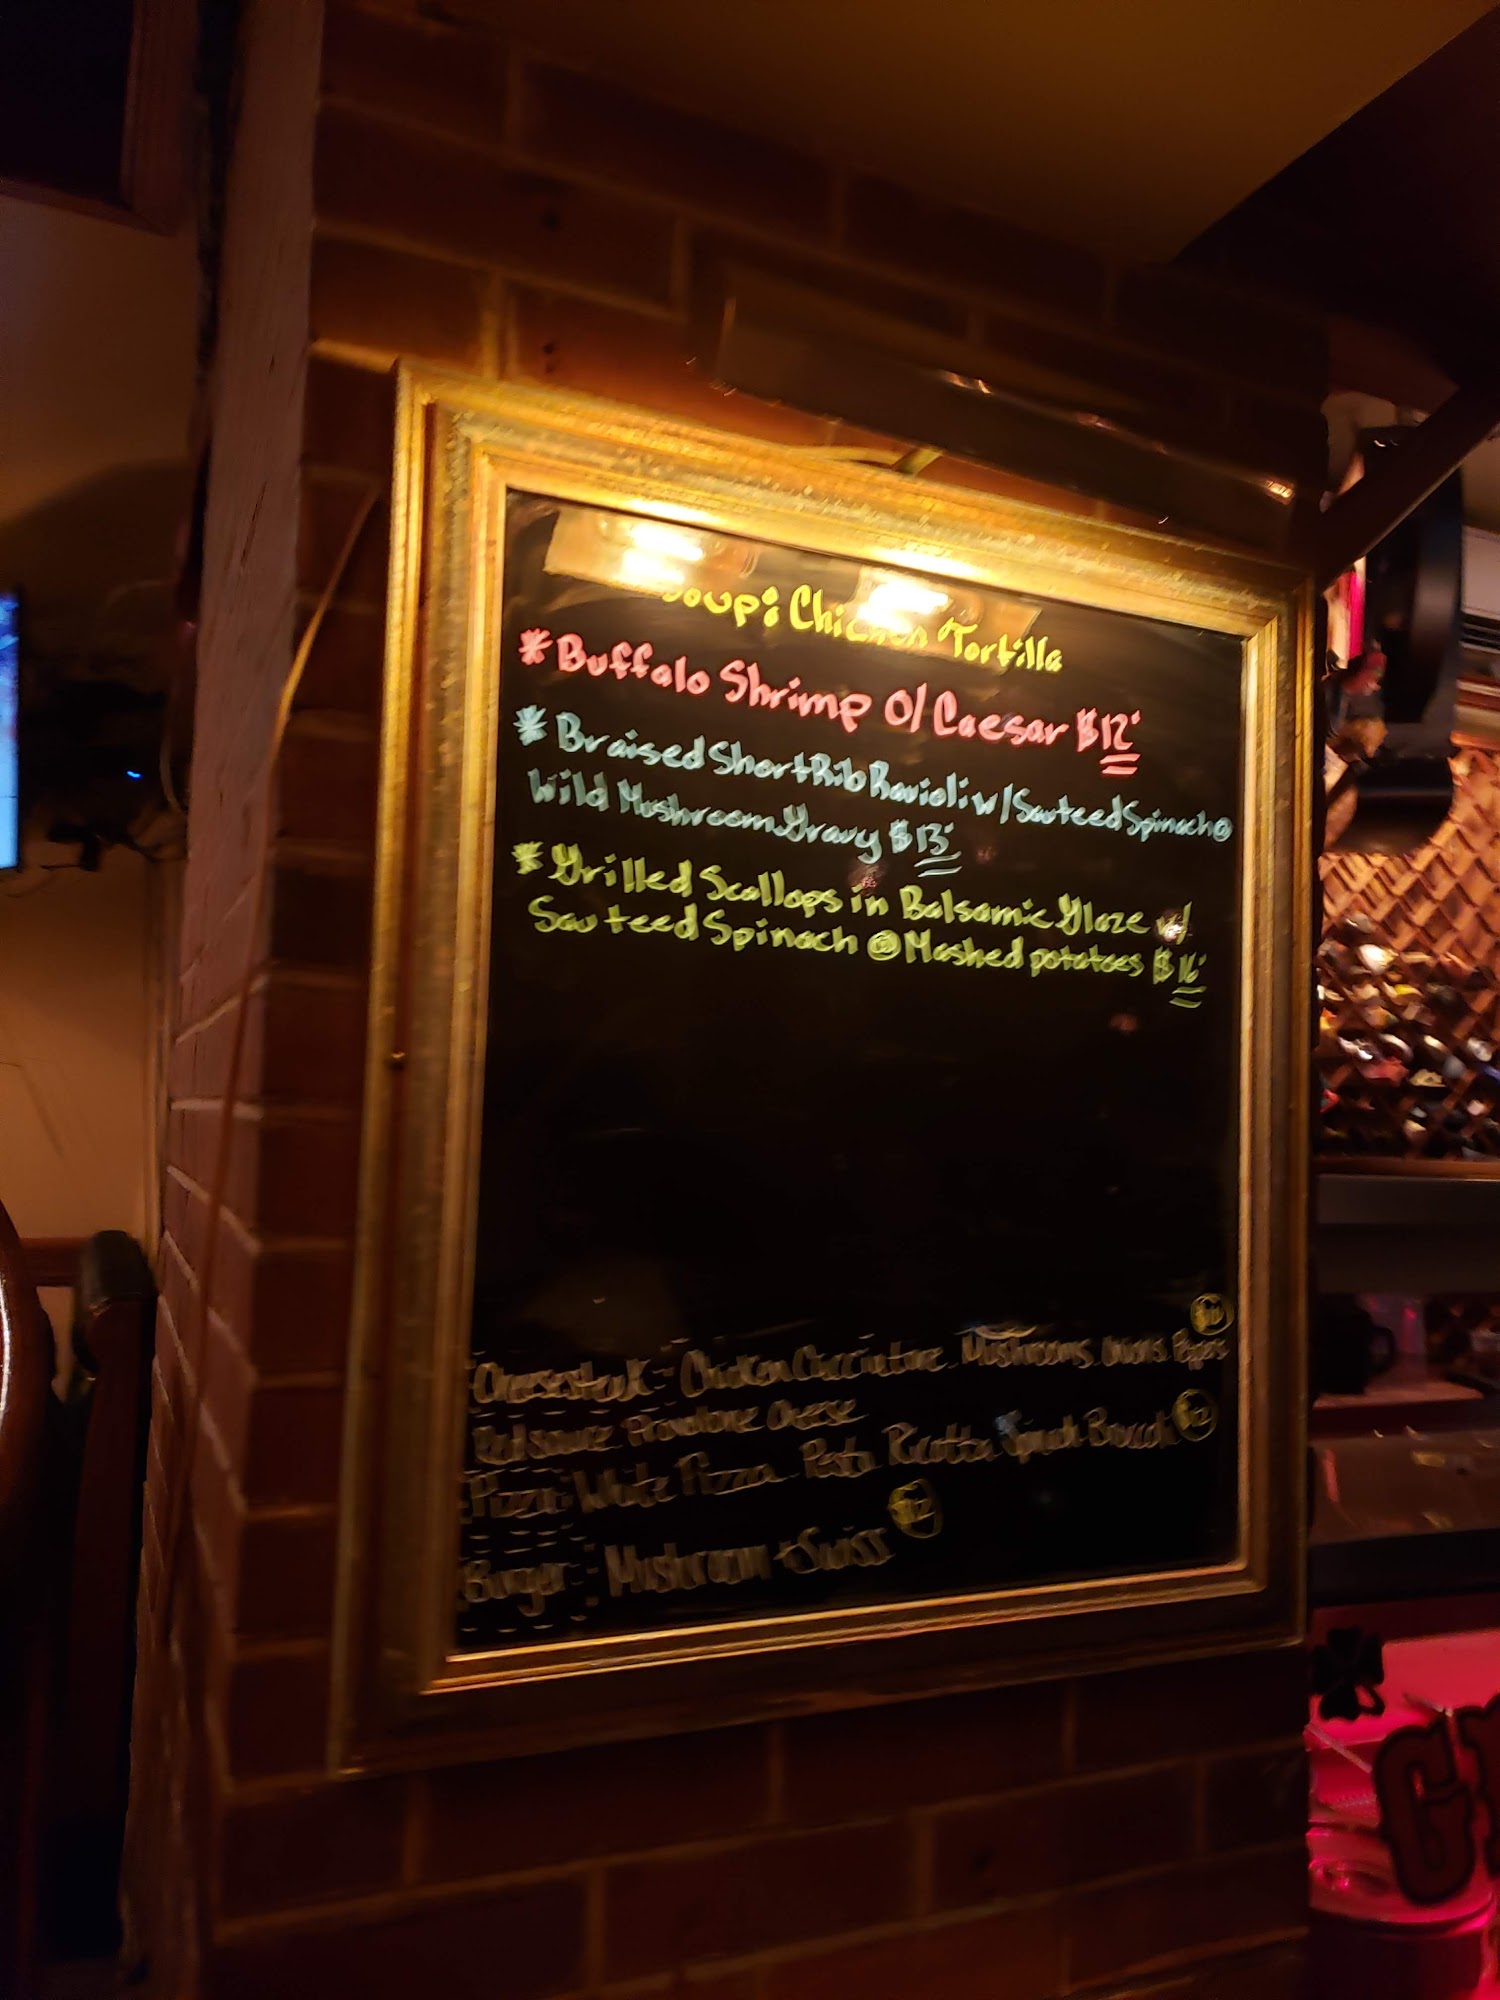 Soup: Chicken Tortilla
* Buffalo Shrimp O/ Caesar $12
* Braised Short Rib Ravioli w/ Sauteed Spinach @
Wild Mushroom Gravy $13
* Grilled Scallops in Balsamic Glaze w/
Sauteed Spinach @ Mashed potatoes $16
Cheesesteak: Chicken Cacciatore. Mushrooms. onions. Peppers
Red sauce Provolone Cheese
Pizza: White Pizza. Pasta Ricotta Spinach Broccoli $12
Burger: Mushroom + Swiss $12